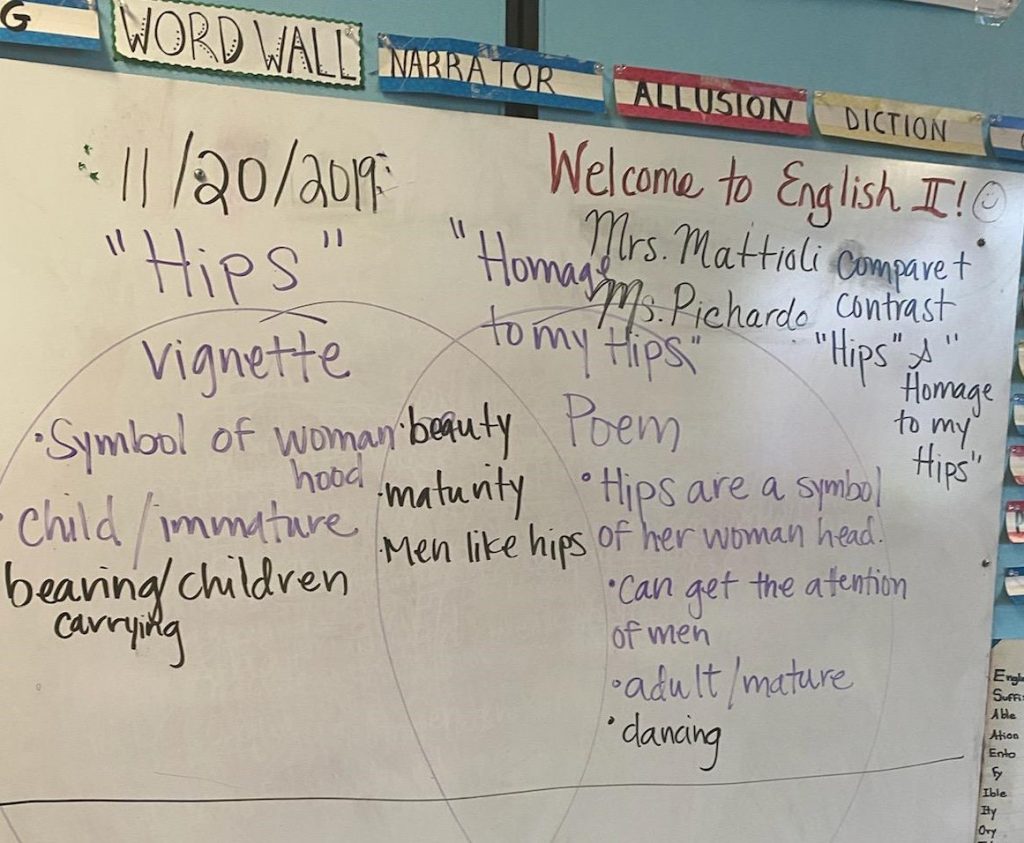 G
WORD WALL
NARRATOR
ALLUSION
DICTION
11/20/2019
Welcome to English II!
Mrs. Mattioli
Ms. Pichardo
compare +
contrast
"Hips" & "
Homage
to my
Hips"
"Hips"
vignette
•Symbol of woman
hood
•Child/immature
bearing/children
carrying
•beauty
•maturity
•Men like hips
"Homage
to my Hips"
Poem
•Hips are a symbol
of her woman head.
•Can get the atention
of men
•adult/mature
•dancing
Able
Ation
Ento
Fy
Ible
Ity
Ory